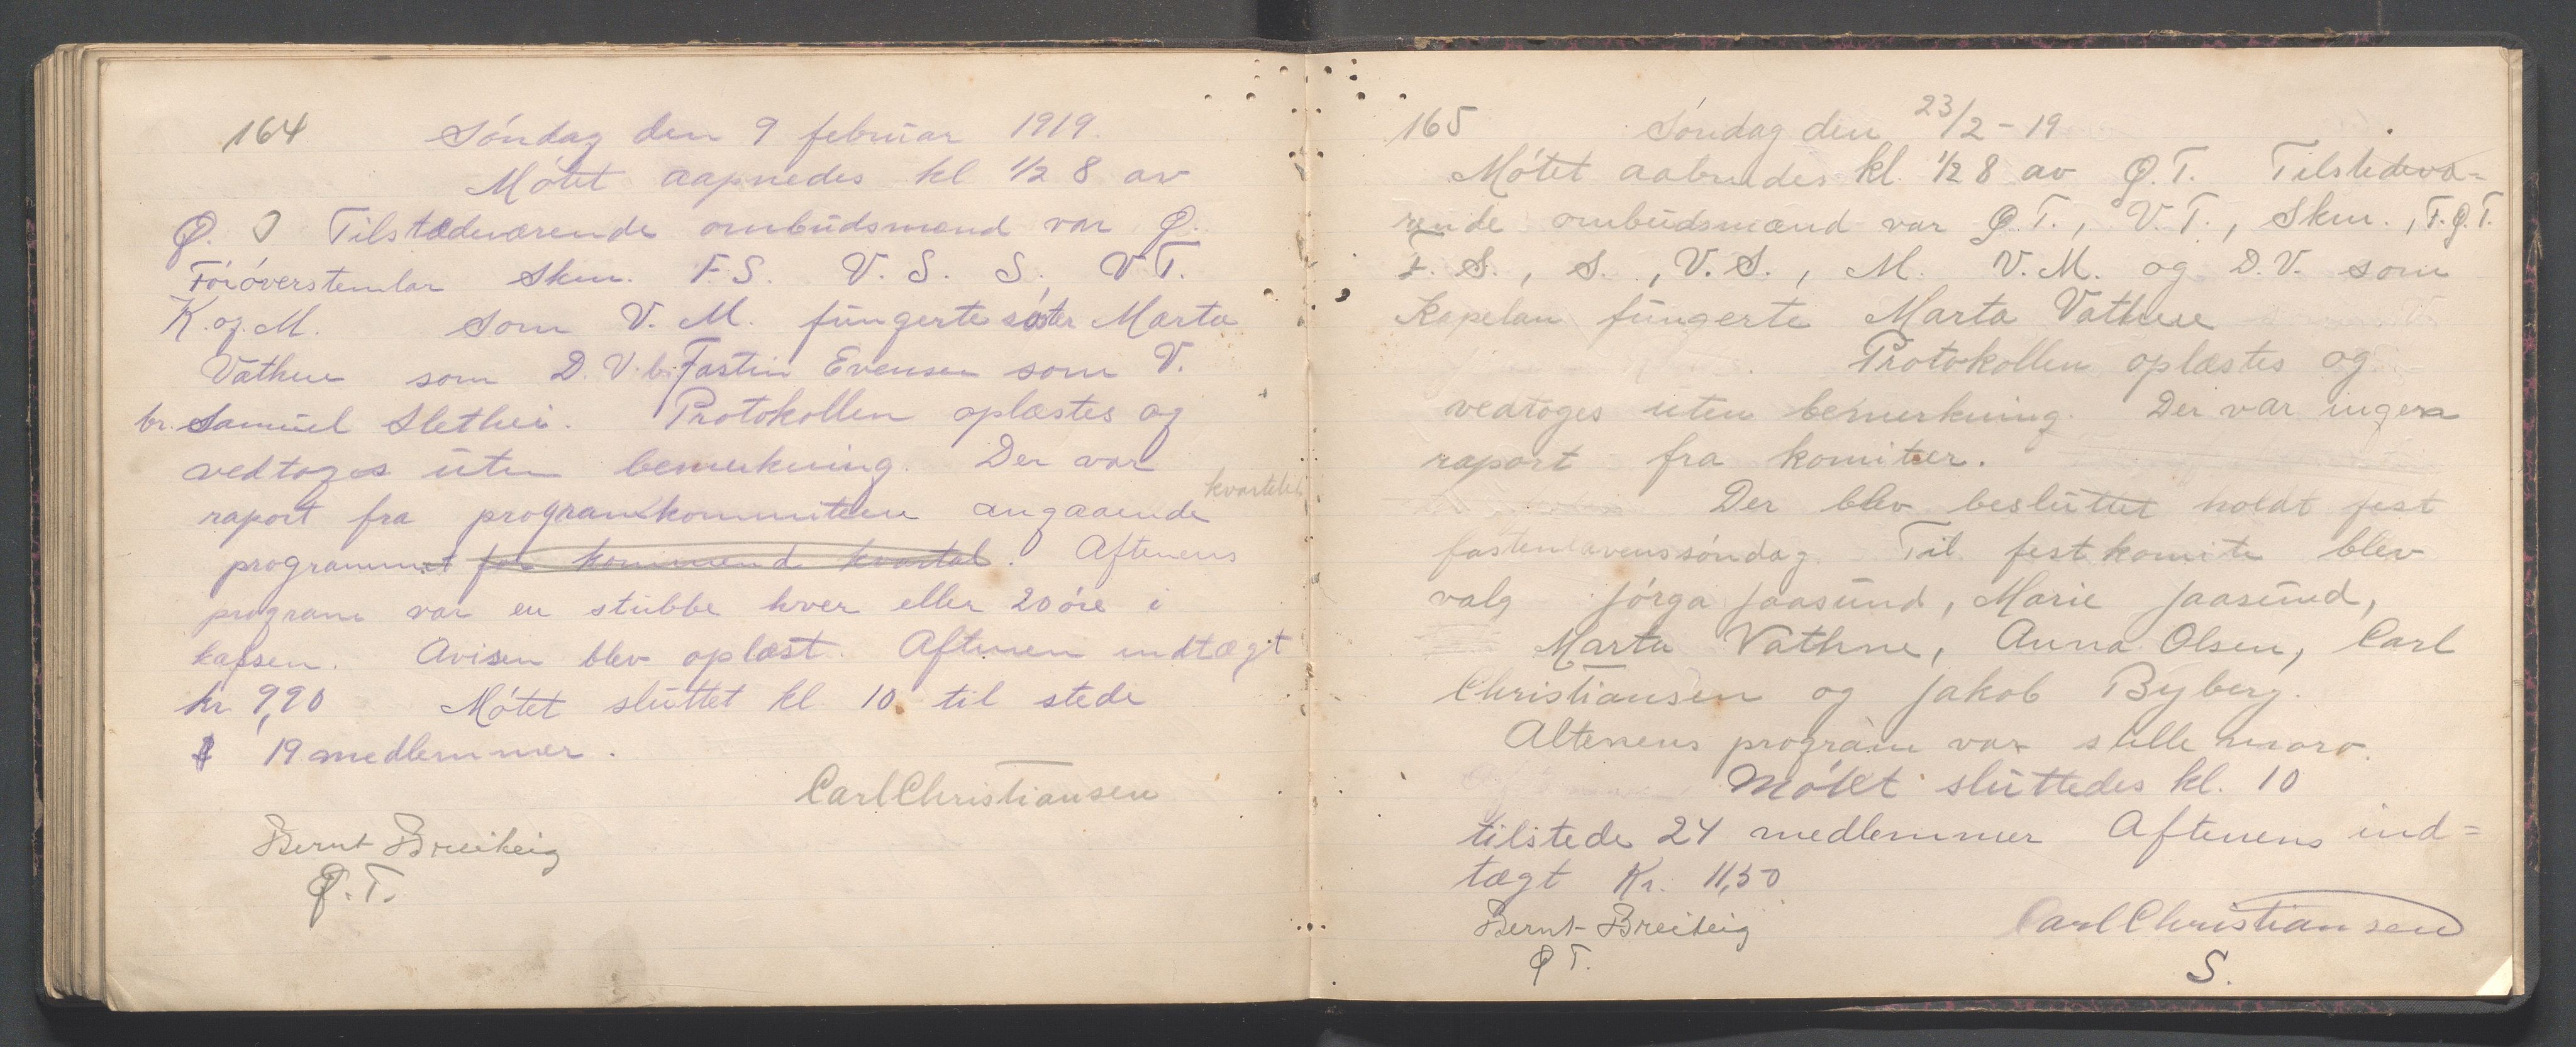 164 Søndag den 9 februar 1919.
Møtet aapnedes kl 1/2 8 av
Ø. Tilstedeværende ombudsmænd var Ø.
Førøverstemlar Skm. F.S. V.S. S, V.T.
K. og. M. som V. M. fungerte søster Marta
Vathne som D.V. br. Evensen som V.
br. Samuel Slethei. Protokollen oplæstes og
vedtoges uten bemerkning. Der var
kvartetet
raport fra programkommiteen angaaende
programmet for kommend kvartal. Aftenens
program var en stubbe hver eller 20 øre i
kassen. Avisen blev oplæst. Aftenen indtægt
kr 9,90 Møtet sluttet kl 10 til stede
19 medlemmer.
Carl Christiansen
Bernt Breiteig
Ø.T.
165 Søndag den 23/2-19
Møtet aabnedes kl. 1/2 8 av Ø.T. Tilstedeva-
rende ombudsmænd var Ø.T., V.T., Skm., F.Ø.T.
F.S., S., V.S., M. V.M. og D.V. som
Kapelan fungerte Marta Vathne
Protokollen oplæstes og
vedtoges uten bemerkning. Der var ingen
raport fra komiteer.
Der blev besluttet holdt fest
fastenlavenssøndag. Til festkomite blev
valg Jørga Jaasund, Marie Jaasund,
Marta Vathne, Anna Olsen, Carl
Christiansen og Jakob Byberg.
Altenens program var stille moro.
Møtet sluttedes kl. 10
tilstede 24 medlemmer Aftenens ind=
tægt Kr. 11,50
Bernt Breiteig Carl Christiansen
Ø T. S.